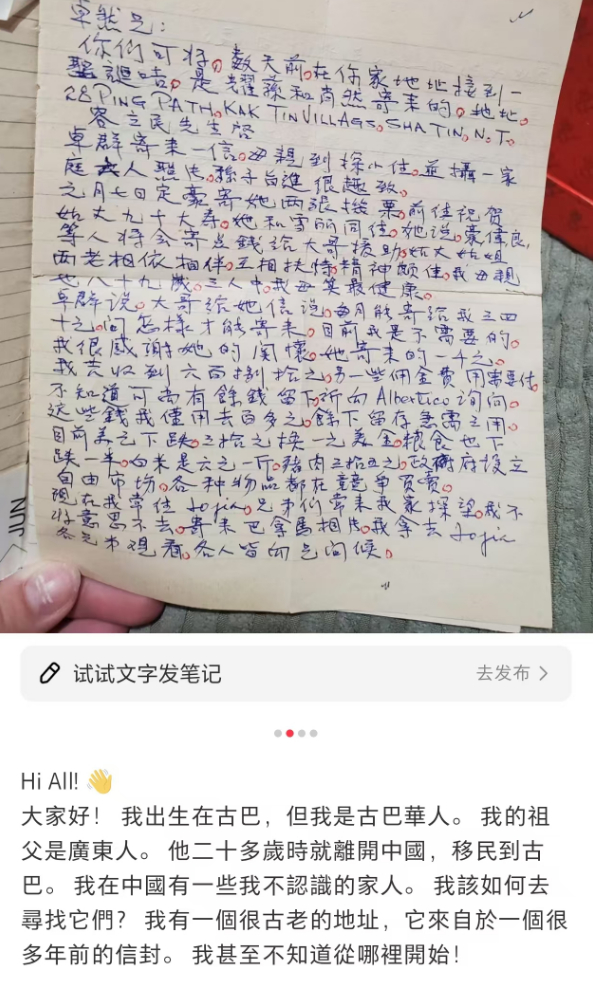 卓然兄:
你們可好,數天前,在你家地址接到一
聖誕咭,是耀蓀和尚然寄來的,地址。
28 PING PATH, KAK TIN VILLAGS, SHATIN, N.T.
客立民先生啓
卓群寄來一信,母親到探小住,並攝一家
庭人聖片,孫子白進很趣致。
之月七日定豪寄她两張機票,前往祝賀
姑丈九十大寿,她和雪丽同往,她说,豪偉良,
等人将今寄点錢给大哥援助,姑丈姑姐
两老相依相伴,互相扶持,精神颇佳,我母親
也八十九歲,三人中,我母算最健康。
卓群说,大哥给她信说,每月能寄给我三四
十之,问怎樣才能寄来,目前我是不需要的。
我很感謝她的関懷,她寄来的一千之,
我共收到六百捌拾之,另一些佣金費用需要付,
不知道可否有餘錢留下,祈向Albertico询问。
这些錢我僅用去百多之,餘下留存急需之用。
目前美之下跌,三拾之换一之美金,粮食也下
跌一半,白米是六之一斤,猪肉三拾五之,政府设立
自由市埸,各种物品都在競争買賣。
现在我常住Jojia,兄弟们常来我家探望,我不
好意思不去,寄来巴拿馬相片,我拿去Jojia
各兄弟观看,各人皆向兄问候。
JUN
试试文字发笔记
去发布 >
Hi All! 👋
大家好! 我出生在古巴,但我是古巴華人。 我的祖
父是廣東人。 他二十多歲時就離開中國,移民到古
巴。 我在中國有一些我不認識的家人。 我該如何去
尋找它們? 我有一個很古老的地址,它來自於一個很
多年前的信封。 我甚至不知道從哪裡開始!